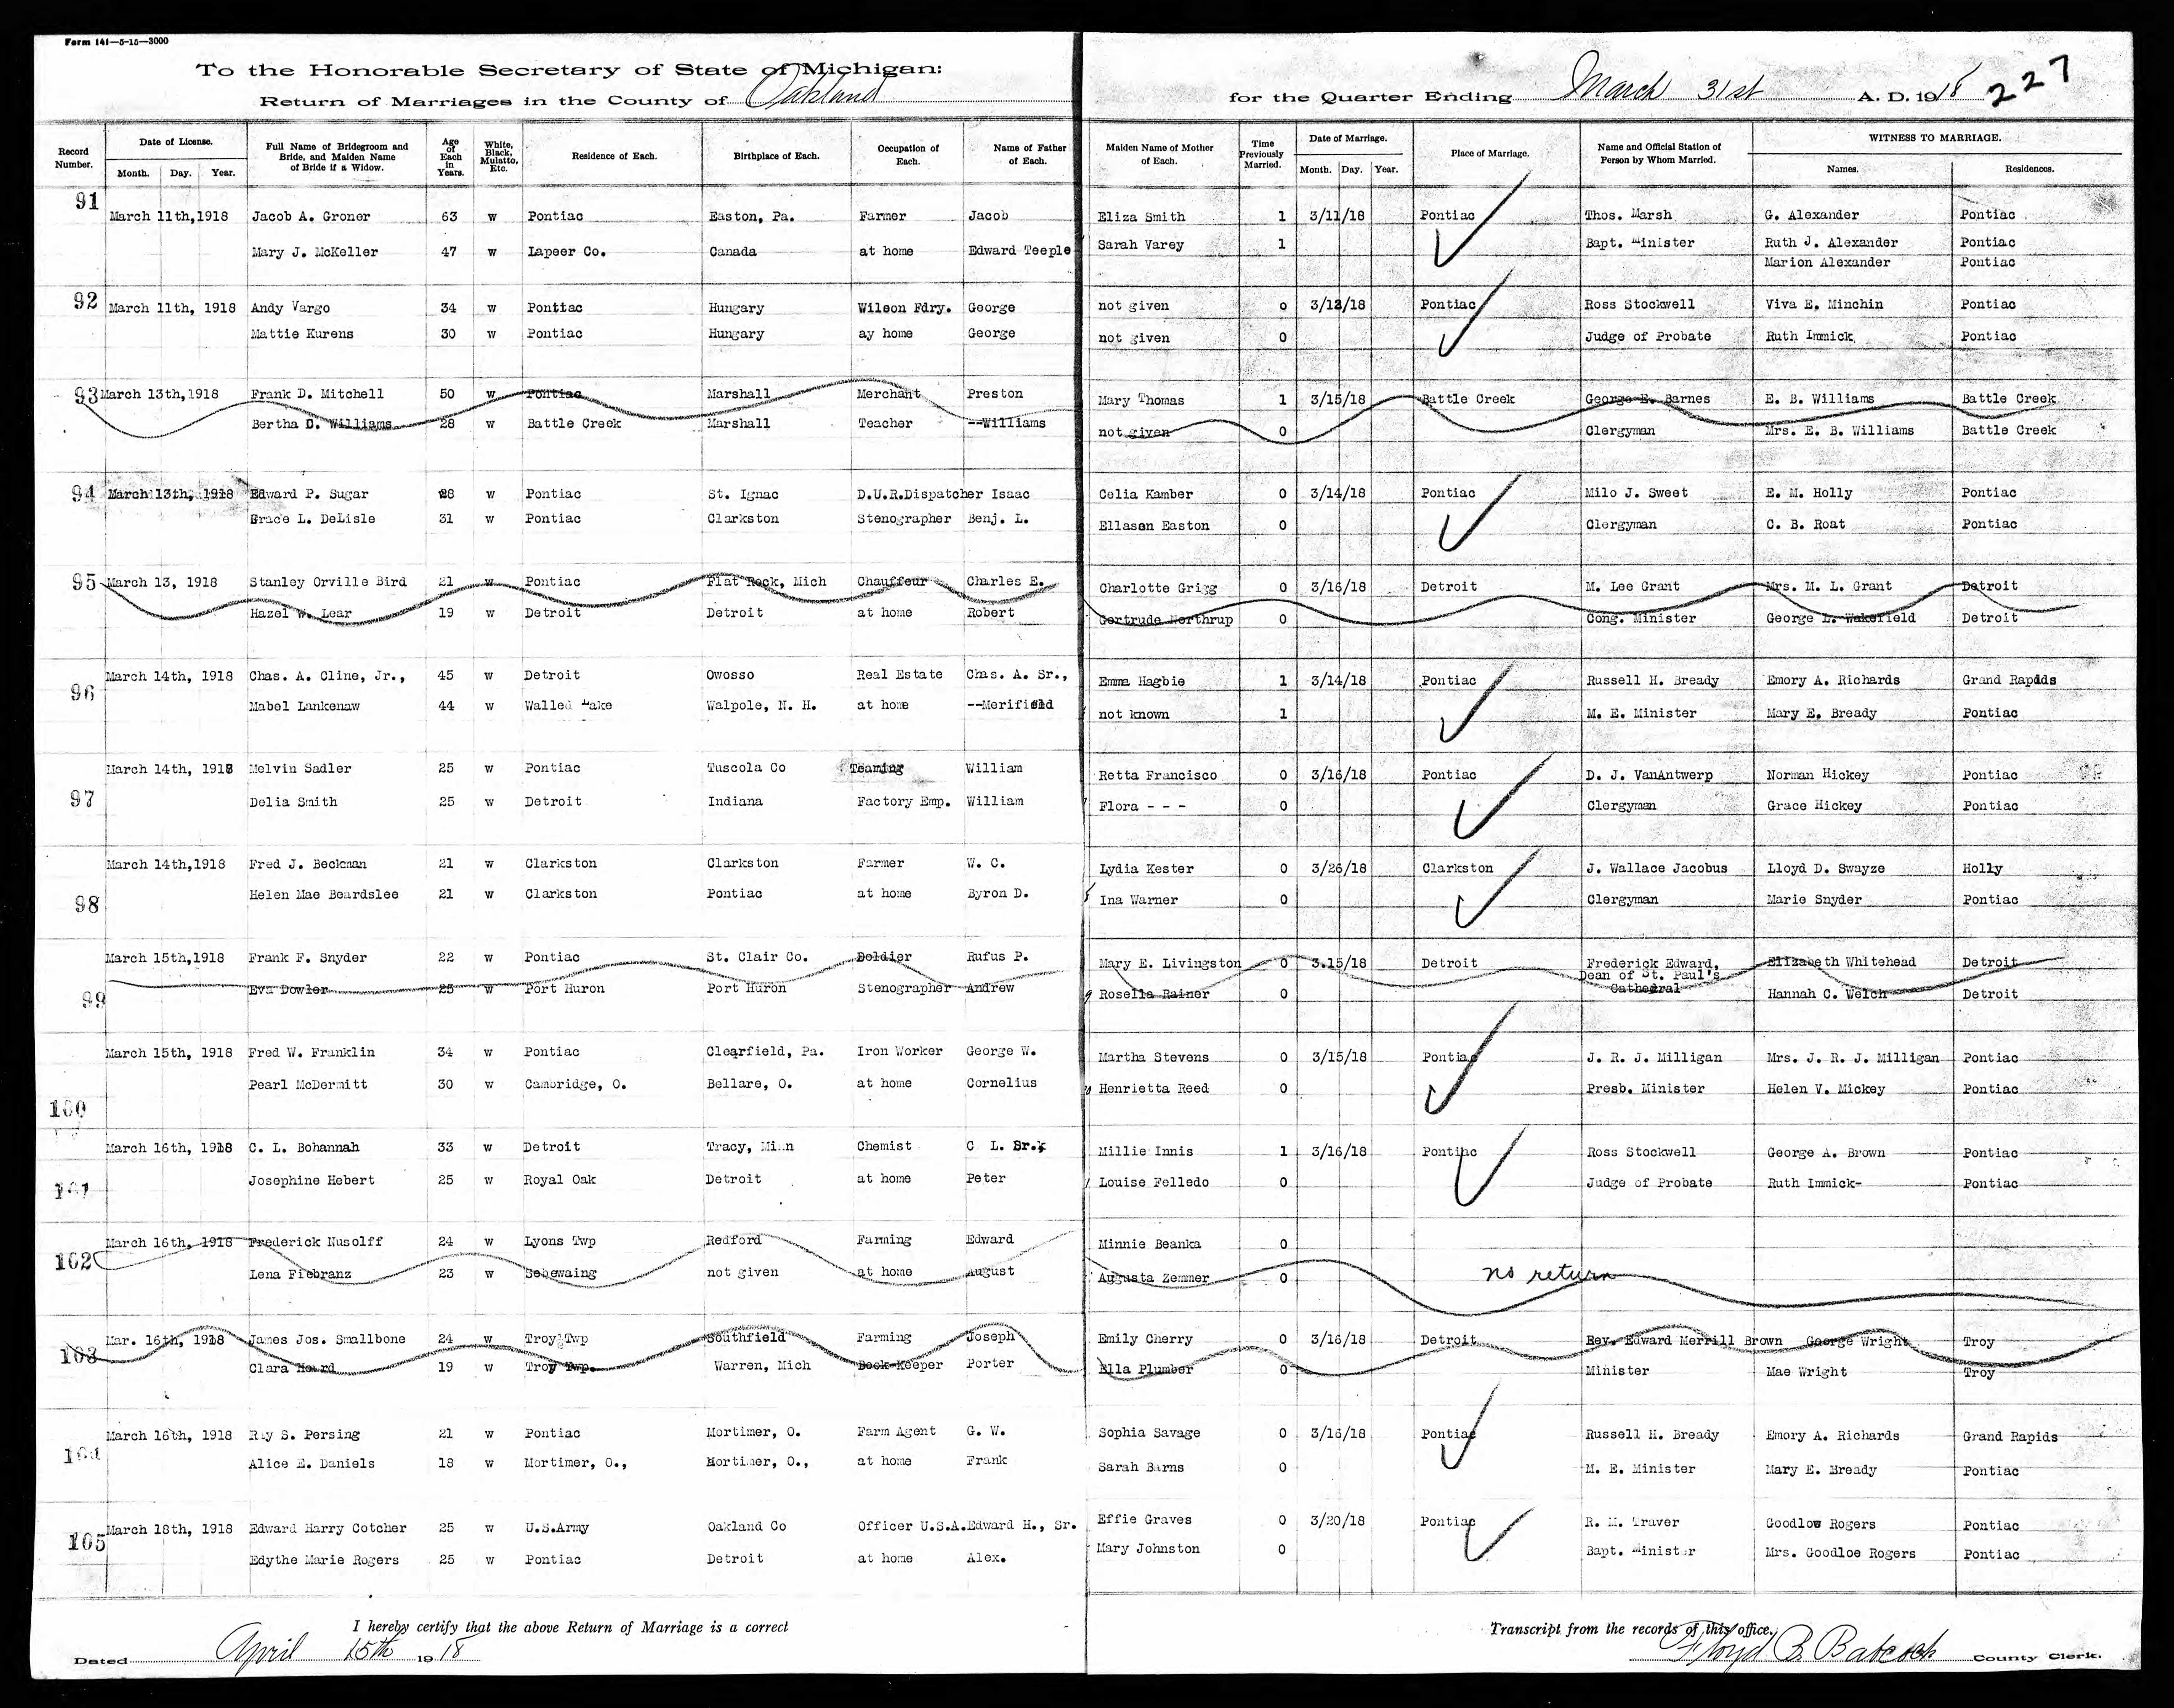 Form 141—5-15—3000
To the Honorable Secretary of State of Michigan:
Return of Marriages in the County of Oakland for the Quarter Ending March 31st A. D. 1918 227
Record Number. Date of License. Month. Day. Year. Full Name of Bridegroom and Bride, and Maiden Name of Bride if a Widow. Age of Each in Years. White, Black, Mulatto, Etc. Residence of Each. Birthplace of Each. Occupation of Each. Name of Father of Each. Maiden Name of Mother of Each. Time Previously Married. Date of Marriage. Month. Day. Year. Place of Marriage. Name and Official Station of Person by Whom Married. WITNESS TO MARRIAGE. Names. Residences.
91 March 11th,1918 Jacob A. Groner 63 w Pontiac Easton, Pa. Farmer Jacob Eliza Smith 1 3/11/18 Pontiac Thos. Marsh G. Alexander Pontiac
Mary J. McKeller 47 w Lapeer Co. Canada at home Edward Teeple Sarah Varey 1 Bapt. Minister Ruth J. Alexander Pontiac
Marion Alexander Pontiac
92 March 11th, 1918 Andy Vargo 34 w Pontiac Hungary Wilson Fdry. George not given 0 3/12/18 Pontiac Ross Stockwell Viva E. Minchin Pontiac
Mattie Kurens 30 w Pontiac Hungary ay home George not given 0 Judge of Probate Ruth Immick Pontiac
93 March 13th,1918 Frank D. Mitchell 50 w Pontiac Marshall Merchant Preston Mary Thomas 1 3/15/18 Battle Creek George E. Barnes E. B. Williams Battle Creek
Bertha D. Williams 28 w Battle Creek Marshall Teacher --Williams not given 0 Clergyman Mrs. E. B. Williams Battle Creek
94 March 13th, 1918 Edward P. Sugar 28 w Pontiac St. Ignac D.U.R.Dispatcher Isaac Celia Kamber 0 3/14/18 Pontiac Milo J. Sweet E. M. Holly Pontiac
Grace L. DeLisle 31 w Pontiac Clarkston Stenographer Benj. L. Ellason Easton 0 Clergyman C. B. Roat Pontiac
95 March 13, 1918 Stanley Orville Bird 21 w Pontiac Flat Rock, Mich Chauffeur Charles E. Charlotte Grigg 0 3/16/18 Detroit M. Lee Grant Mrs. M. L. Grant Detroit
Hazel W. Lear 19 w Detroit Detroit at home Robert Gertrude Northrup 0 Cong. Minister George L. Wakefield Detroit
96 March 14th, 1918 Chas. A. Cline, Jr., 45 w Detroit Owosso Real Estate Chas. A. Sr., Emma Hagbie 1 3/14/18 Pontiac Russell H. Bready Emory A. Richards Grand Rapids
Mabel Lankenaw 44 w Walled Lake Walpole, N. H. at home --Merifield not known 1 M. E. Minister Mary E. Bready Pontiac
97 March 14th, 1918 Melvin Sadler 25 w Pontiac Tuscola Co Teaming William Retta Francisco 0 3/16/18 Pontiac D. J. VanAntwerp Norman Hickey Pontiac
Delia Smith 25 w Detroit Indiana Factory Emp. William Flora - - - 0 Clergyman Grace Hickey Pontiac
98 March 14th,1918 Fred J. Beckman 21 w Clarkston Clarkston Farmer W. C. Lydia Kester 0 3/26/18 Clarkston J. Wallace Jacobus Lloyd D. Swayze Holly
Helen Mae Beardslee 21 w Clarkston Pontiac at home Byron D. Ina Warner 0 Clergyman Marie Snyder Pontiac
99 March 15th,1918 Frank F. Snyder 22 w Pontiac St. Clair Co. Doldier Rufus P. Mary E. Livingston 0 3.15/18 Detroit Frederick Edward, Elizabeth Whitehead Detroit
Eva Dowler 25 w Port Huron Port Huron Stenographer Andrew Rosella Rainer 0 Dean of St. Paul's Cathedral Hannah C. Welch Detroit
100 March 15th, 1918 Fred W. Franklin 34 w Pontiac Clearfield, Pa. Iron Worker George W. Martha Stevens 0 3/15/18 Pontiac J. R. J. Milligan Mrs. J. R. J. Milligan Pontiac
Pearl McDermitt 30 w Cambridge, O. Bellare, O. at home Cornelius Henrietta Reed 0 Presb. Minister Helen V. Mickey Pontiac
101 March 16th, 1918 C. L. Bohannah 33 w Detroit Tracy, Minn Chemist C L. Sr. Millie Innis 1 3/16/18 Pontiac Ross Stockwell George A. Brown Pontiac
Josephine Hebert 25 w Royal Oak Detroit at home Peter Louise Felledo 0 Judge of Probate Ruth Immick- Pontiac
102 March 16th, 1918 Frederick Nusolff 24 w Lyons Twp Redford Farming Edward Minnie Beanka 0
Lena Fiebranz 23 w Sebewaing not given at home August Augusta Zemmer 0 no return
103 Mar. 16th, 1918 James Jos. Smallbone 24 w Troy Twp Southfield Farming Joseph Emily Cherry 0 3/16/18 Detroit Rev. Edward Merrill Brown George Wright Troy
Clara Heard 19 w Troy Twp. Warren, Mich Book-Keeper Porter Ella Plumber 0 Minister Mae Wright Troy
104 March 16th, 1918 Ray S. Persing 21 w Pontiac Mortimer, O. Farm Agent G. W. Sophia Savage 0 3/16/18 Pontiac Russell H. Bready Emory A. Richards Grand Rapids
Alice E. Daniels 18 w Mortimer, O., Mortimer, O., at home Frank Sarah Barns 0 M. E. Minister Mary E. Bready Pontiac
105 March 18th, 1918 Edward Harry Cotcher 25 w U.S.Army Oakland Co Officer U.S.A. Edward H., Sr. Effie Graves 0 3/20/18 Pontiac R. M. Traver Goodlow Rogers Pontiac
Edythe Marie Rogers 25 w Pontiac Detroit at home Alex. Mary Johnston 0 Bapt. Minister Mrs. Goodloe Rogers Pontiac
I hereby certify that the above Return of Marriage is a correct Transcript from the records of this office.
Dated April 15th 1918 Floyd B. Babcock County Clerk.